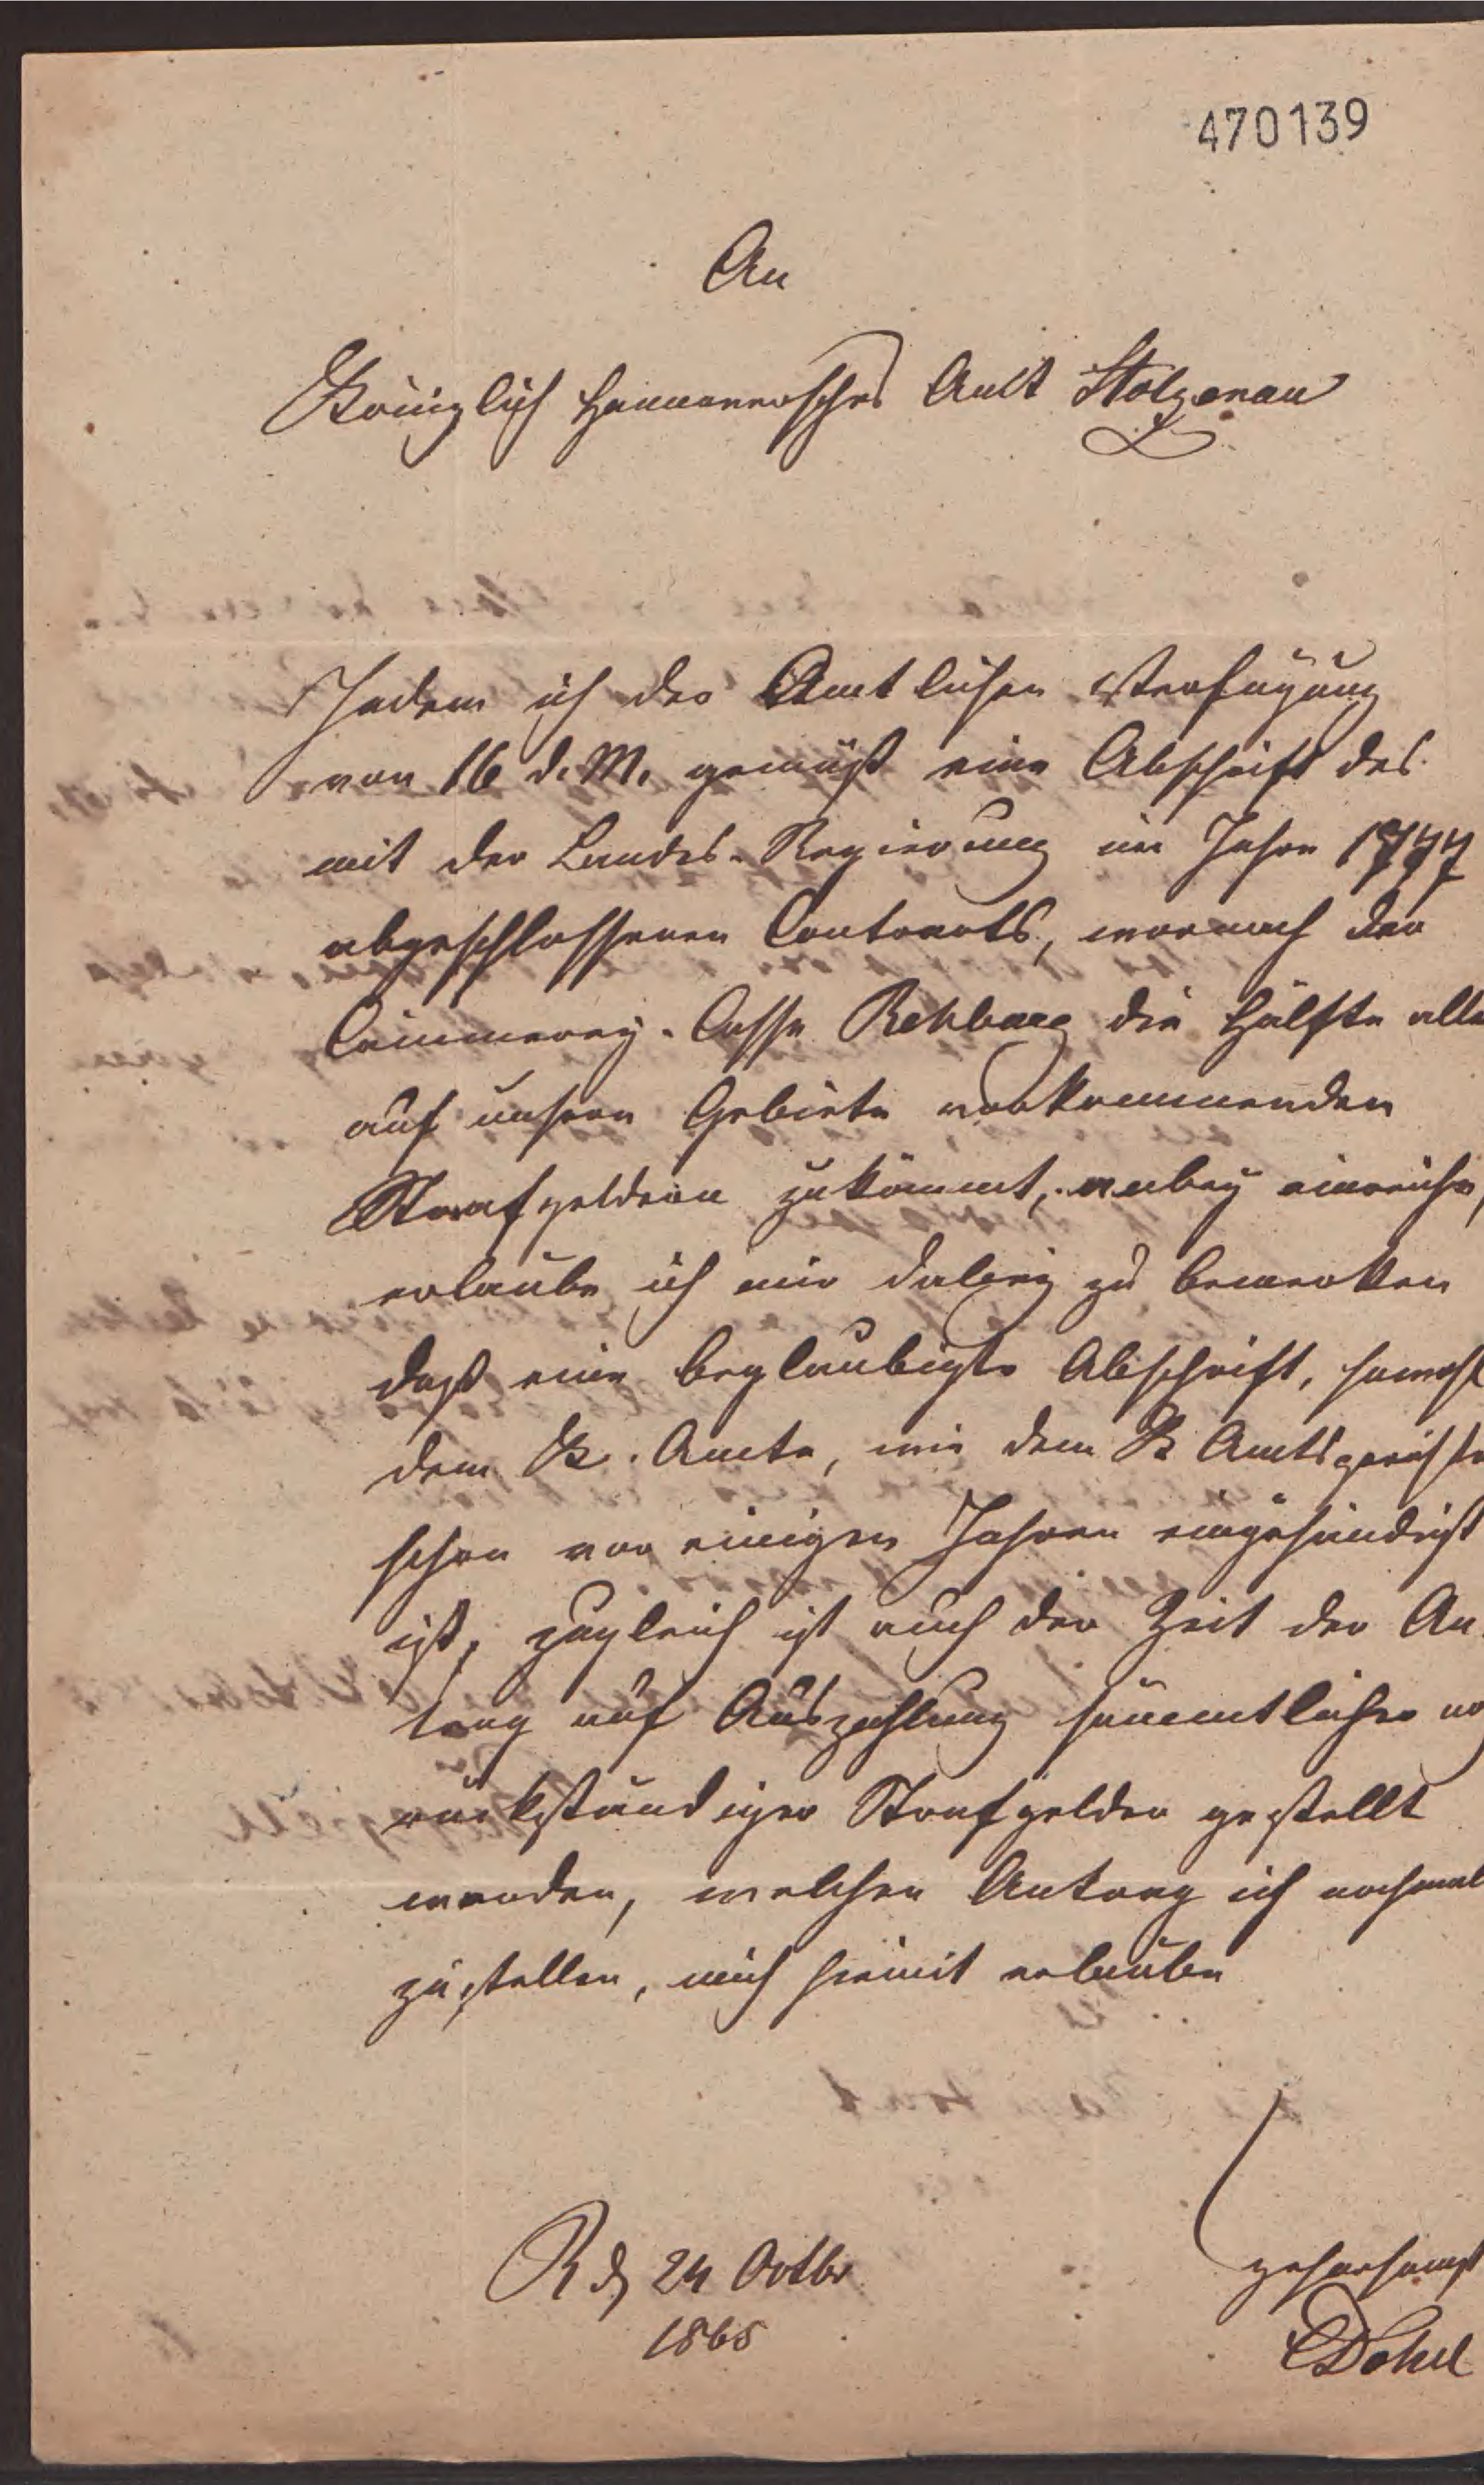 470139
An
Königlich Hannoversches Amt Stolzenau
Indem ich der Amtlichen Verfügung
von 16 d. M. gemäß eine Abschrift des
mit der Landes-Regierung im Jahre 1777
abgeschlossenen Contracts, wornach der
Cämmerey-Casse Rehburg die Hälfte alle
auf unsern Gebiete vorkommenden
Strafgeldern zukömmt, anbey einreiche,
erlaube ich mir dabey zu bemerken
daß eine beglaubigte Abschrift, sowohl
dem K. Amte, wie dem K Amtsgerichte
schon vor einigen Jahren eingehändigt
ist, zugleich ist auch der Zeit der An-
trag auf Auszahlung sämmtlicher
rückständiger Strafgelder gestellt
worden, welchen Antrag ich nochmal
zustellen, mich hiemit erlaube
R d 24 Octbr
1865
gehorsamst